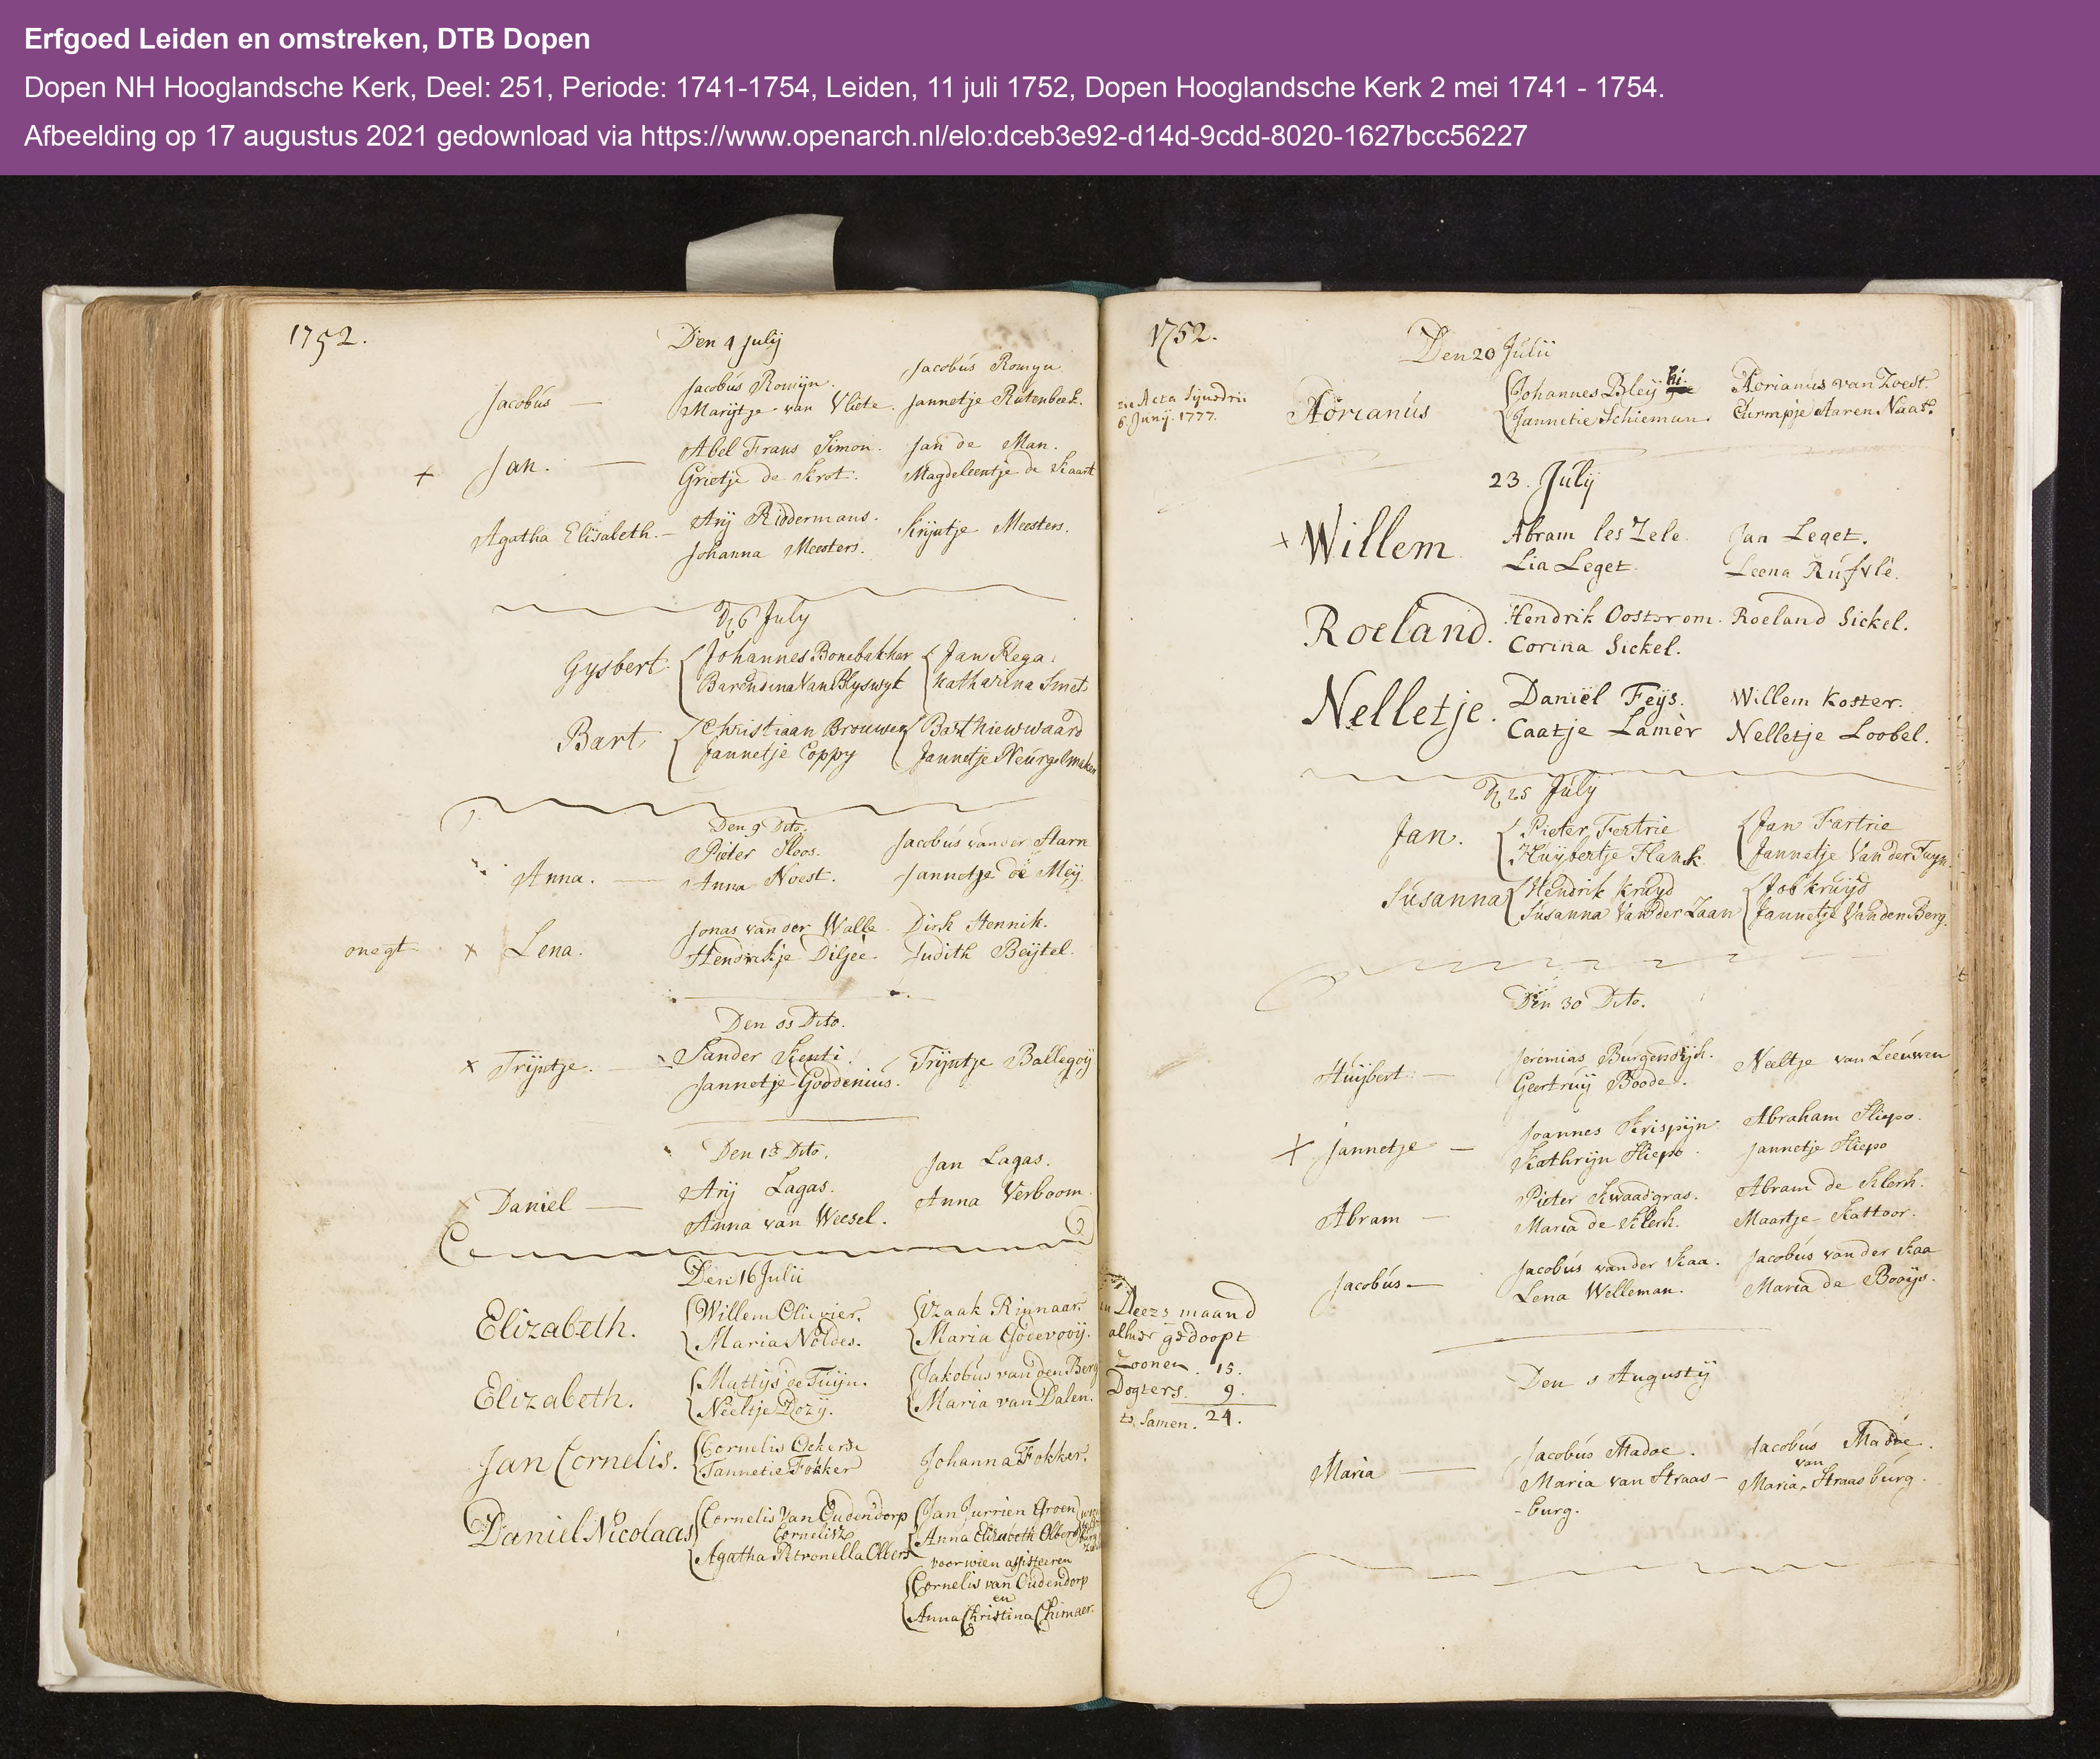 Erfgoed Leiden en omstreken, DTB Dopen
Dopen NH Hooglandsche Kerk, Deel: 251, Periode: 1741-1754, Leiden, 11 juli 1752, Dopen Hooglandsche Kerk 2 mei 1741 - 1754.
Afbeelding op 17 augustus 2021 gedownload via https://www.openarch.nl/elo:dceb3e92-d14d-9cdd-8020-1627bcc56227
1752.
Den 4 July
Jacobús — Jacobús Romijn. Jacobús Romyn
Marijtje van Vliete. Jannetje Rútenbeek.
x Jan. — Abel Frans Simon. Jan de Man.
Grietje de Krot. Magdeleentje de Kaart
Agatha Elisabeth. — Arij Riddermans. Krijntje Meesters.
Johanna Meesters.
D 6 July
Gysbert. Johannes Bonebakker Jan Rega.
Barendina Van Blyswyk Katharina Smet
Bart Christiaan Brouwer Bart Niewwaard
Jannetje Coppy Jannetje Neurgelmaker
Den 9 Dito.
Anna. — Pieter Kloos. Jacobús van der Starn
Anna Noest. Jannetje de Meij.
onegt x Lena. Jonas van der Walle. Dirk Hennik.
Hendrikje Diljeé. Judith Beijtel.
Den Dito.
x Trijntje. — Sander Kenti. Trijntje Ballegoij
Jannetje Goddeniús.
Den 13 Dito.
x Daniel — Arij Lagas. Jan Lagas.
Anna van Weesel. Anna Verboom
Den 16 Julii
Elizabeth. Willem Olivier. Izaak Rinnaar.
Maria Noldes. Maria Godevooij.
Elizabeth. Mattijs de Túijn. Jakobus van den Berg
Neeltje Dozij. Maria van Dalen.
Jan Cornelis. Cornelis Ockerse Johanna Fokker.
Tannetie Fokker
Daniel Nicolaas Cornelis Van Oudendorp Jan Jurrien Groen
Cornelisz Anna Elizabeth Olbers
Agatha Petronella Olbers voor wien assisteeren
Cornelis van Oudendorp
en
Anna Christina Chimaer.
1752.
Den 20 Júlii
Acta Synedrii
6 Junij. 1777.
Adrianús Johannes Bleij hi. Adrianús van Zoest.
Jannetie Schieman. Aaren Naas.
23. Júlÿ
x Willem. Abram les Zele. Jan Leget.
Lia Leget. Leena
Roeland. Hendrik Oostrom. Roeland Sickel.
Corina Sickel.
Nelletje. Daniël Feÿs. Willem Koster.
Caatje Lamèr Nelletje Loobel.
D 25 Júly
Jan. Pieter Fertrie Jan Fartrie
Húijbertje Hank Jannetje Van der Tuyn.
Súsanna Hendrik Krúyd Job Krúijd
Susanna Van der Zaan Jannetje Van den Berg.
Den 30 Dito.
Húijbert — Jeremias Búrgendijk. Neeltje van Leeúwen
Geertrúij Boode.
x Jannetje — Joannes Krispijn. Abraham Kliepo.
Kathrijn Kliepo. Jannetje Kliepo
Abram — Pieter Kwaadgras. Abram de Klerk.
Maria de Klerk. Maartje Kattoor.
Jacobús — Jacobús van der Kaa. Jacobús van der Kaa
Lena Welleman. Maria de Booijs.
in Deeze maand
alhier gedoopt
Zoonen. 15.
Dogters. 9.
te Samen. 24.
Den Augustij
Maria — Jacobús Madoe. Jacobús Madoe.
van
Maria van Straas- Maria Straasbúrg.
-burg.